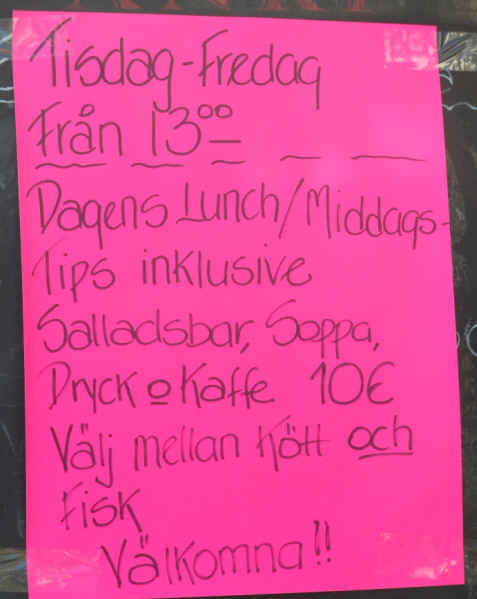 Tisdag-Fredag
Från 13⁰⁰
Dagens Lunch/Middags-
Tips inklusive
Salladsbar, Soppa,
Dryck o Kaffe 10€
Välj mellan Kött och
Fisk
Välkomna!!